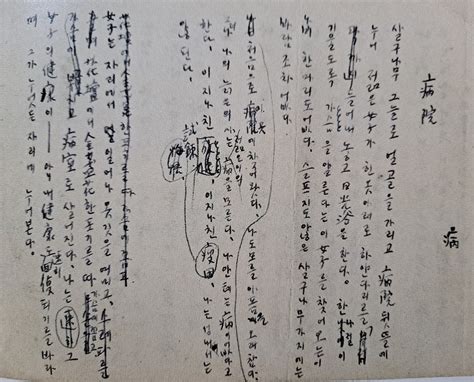 病院
病
살구나무 그늘로 얼골을 가리고 病院 뒷뜰에
누어, 젊은 女子가 힌옷아래로 하얀다리를
드려내 놓고 日光浴을 한다. 한나절이
기울도록 가슴을 알른다는 이 女子를 찾어 오는이
나비 한마리도 없다. 슬프지도 않은 살구나무가지에는
바람조차 없다.
처음으로 이곳에 찾어왔다. 나도모를 아픔을 오래참다
그러나 나의 늙은 의사는 젊은이의 病을 모른다. 나안테는 病이 없다고
한다. 이지나친 試鍊, 이지나친 疲勞, 나는 성내서는
않된다.
女子는 자리에서 일어나 옷깃을 여미고
花壇에서 金盞花 한포기를 따 가슴에 꽂고
病室로 살어진다. 나는 그
女子의 健康이 — 아니 내 健康도 速히 回復되기를 바라
며 그가 누엇든 자리에 누어본다.